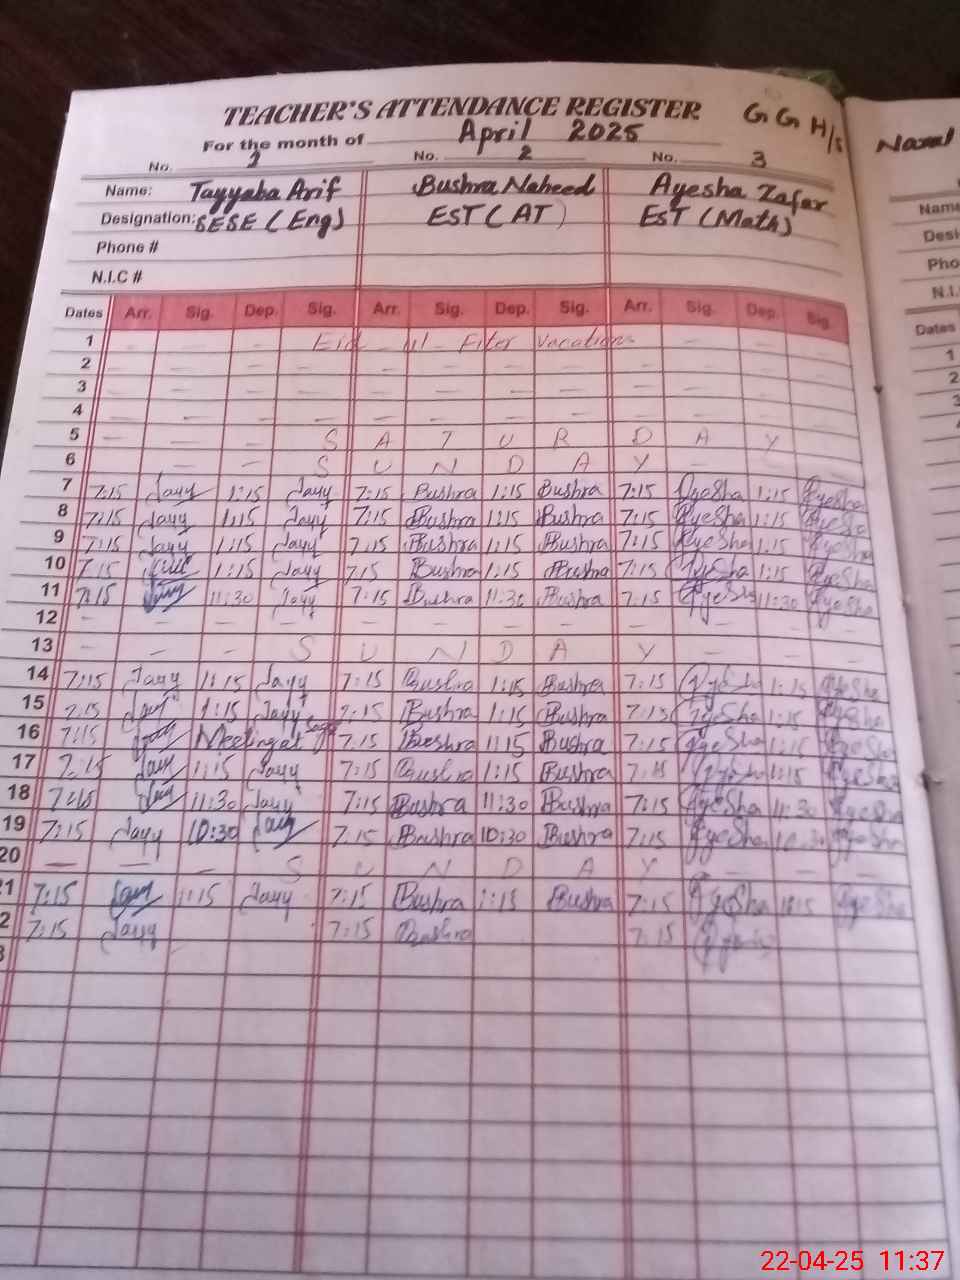 TEACHER'S ATTENDANCE REGISTER GGH/S
For the month of April 2025
No. 1 No. 2 No. 3
Name: Tayyaba Arif Bushra Naheed Ayesha Zafar
Designation: SESE (Eng) EST (AT) EST (Math)
Phone #
N.I.C #
Dates Arr. Sig. Dep. Sig. Arr. Sig. Dep. Sig. Arr. Sig. Dep. Sig.
1 Eid ul Fiter Vacations
2 - - - - - - - - - - - -
3 - - - - - - - - - - - -
4 - - - - - - - - - - - -
5 - - - S A T U R D A Y
6 - - - S U N D A Y - - -
7 7:15 Tayy 1:15 Tayy 7:15 Bushra 1:15 Bushra 7:15 AyeSha 1:15 AyeSha
8 7:15 Tayy 1:15 Tayy 7:15 Bushra 1:15 Bushra 7:15 AyeSha 1:15 AyeSha
9 7:15 Tayy 1:15 Tayy 7:15 Bushra 1:15 Bushra 7:15 AyeSha 1:15 AyeSha
10 7:15 1:15 Tayy 7:15 Bushra 1:15 Bushra 7:15 AyeSha 1:15 AyeSha
11 7:15 Tayy 11:30 Tayy 7:15 Bushra 11:30 Bushra 7:15 AyeSha 11:30 AyeSha
12 - - - - - - - - - - - -
13 - - - S U N D A Y - - -
14 7:15 Tayy 1:15 Tayy 7:15 Bushra 1:15 Bushra 7:15 AyeSha 1:15 AyeSha
15 7:15 Tayy 1:15 Tayy 7:15 Bushra 1:15 Bushra 7:15 AyeSha 1:15 AyeSha
16 7:15 Tayy Meeting at 7:15 Bushra 1:15 Bushra 7:15 AyeSha 1:15 AyeSha
17 7:15 Tayy 1:15 Tayy 7:15 Bushra 1:15 Bushra 7:15 AyeSha 1:15 AyeSha
18 7:15 Tayy 11:30 Tayy 7:15 Bushra 11:30 Bushra 7:15 AyeSha 11:30 AyeSha
19 7:15 Tayy 10:30 Tayy 7:15 Bushra 10:30 Bushra 7:15 AyeSha 10:30 AyeSha
20 - - - S U N D A Y - - -
21 7:15 Tayy 1:15 Tayy 7:15 Bushra 1:15 Bushra 7:15 AyeSha 1:15 AyeSha
2 7:15 Tayy 7:15 Bushra 7:15
3
Name
Desi
Pho
N.I.
Dates
1
2
3
22-04-25 11:37